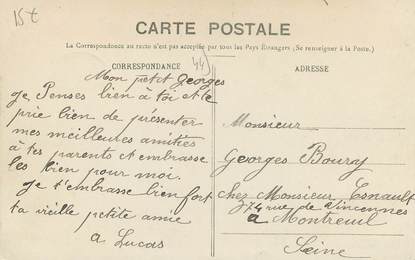 15t
CARTE POSTALE
La Correspondance au recto n'est pas acceptée par tous les Pays Étrangers (Se renseigner à la Poste.)
CORRESPONDANCE
44
ADRESSE
Mon petit Georges
Je Penses bien à toi et te
prie bien de présenter
mes meilleures amitiés
à tes parents et embrasse
les bien pour moi.
Je t'embrasse bien fort
ta vieille petite amie
a Lucas
Monsieur
Georges Boury
Chez Monsieur Esnault
74 rue de Vincennes
à Montreuil
Seine